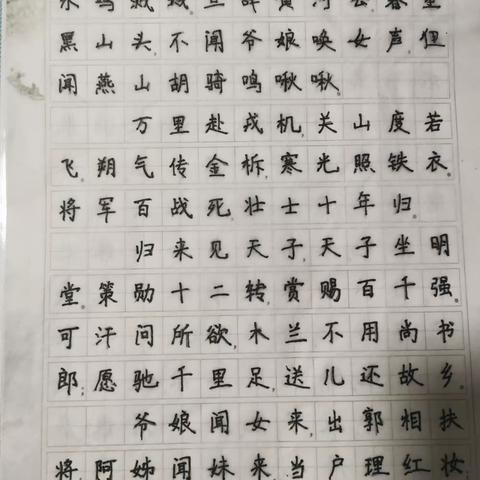 水鸣溅溅旦辞黄河去暮至
黑山头,不闻爷娘唤女声,但
闻燕山胡骑鸣啾啾。
万里赴戎机,关山度若
飞。朔气传金柝,寒光照铁衣。
将军百战死,壮士十年归。
归来见天子,天子坐明
堂。策勋十二转,赏赐百千强。
可汗问所欲,木兰不用尚书
郎;愿驰千里足,送儿还故乡。
爷娘闻女来,出郭相扶
将;阿姊闻妹来,当户理红妆